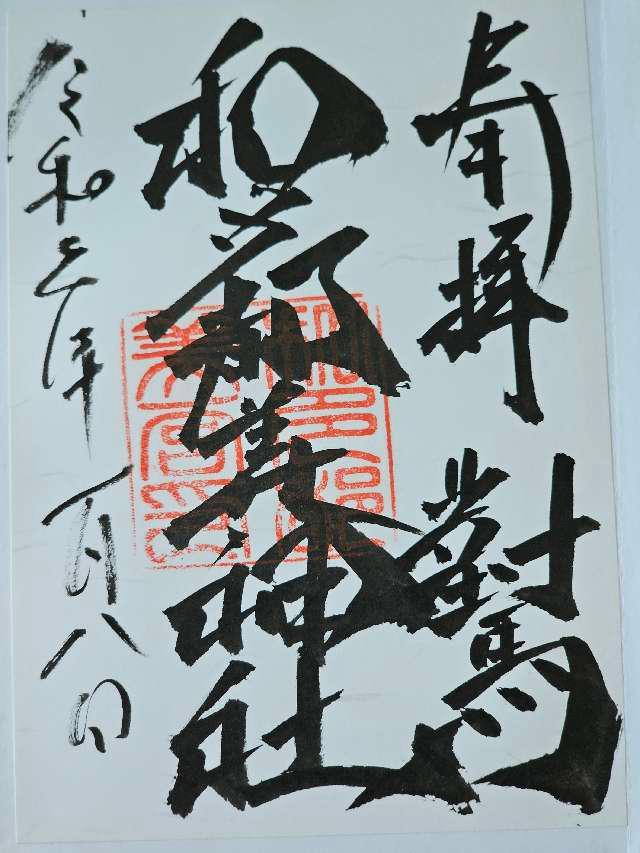 奉拝 對馬
和多都美神社
令和三年一月八日